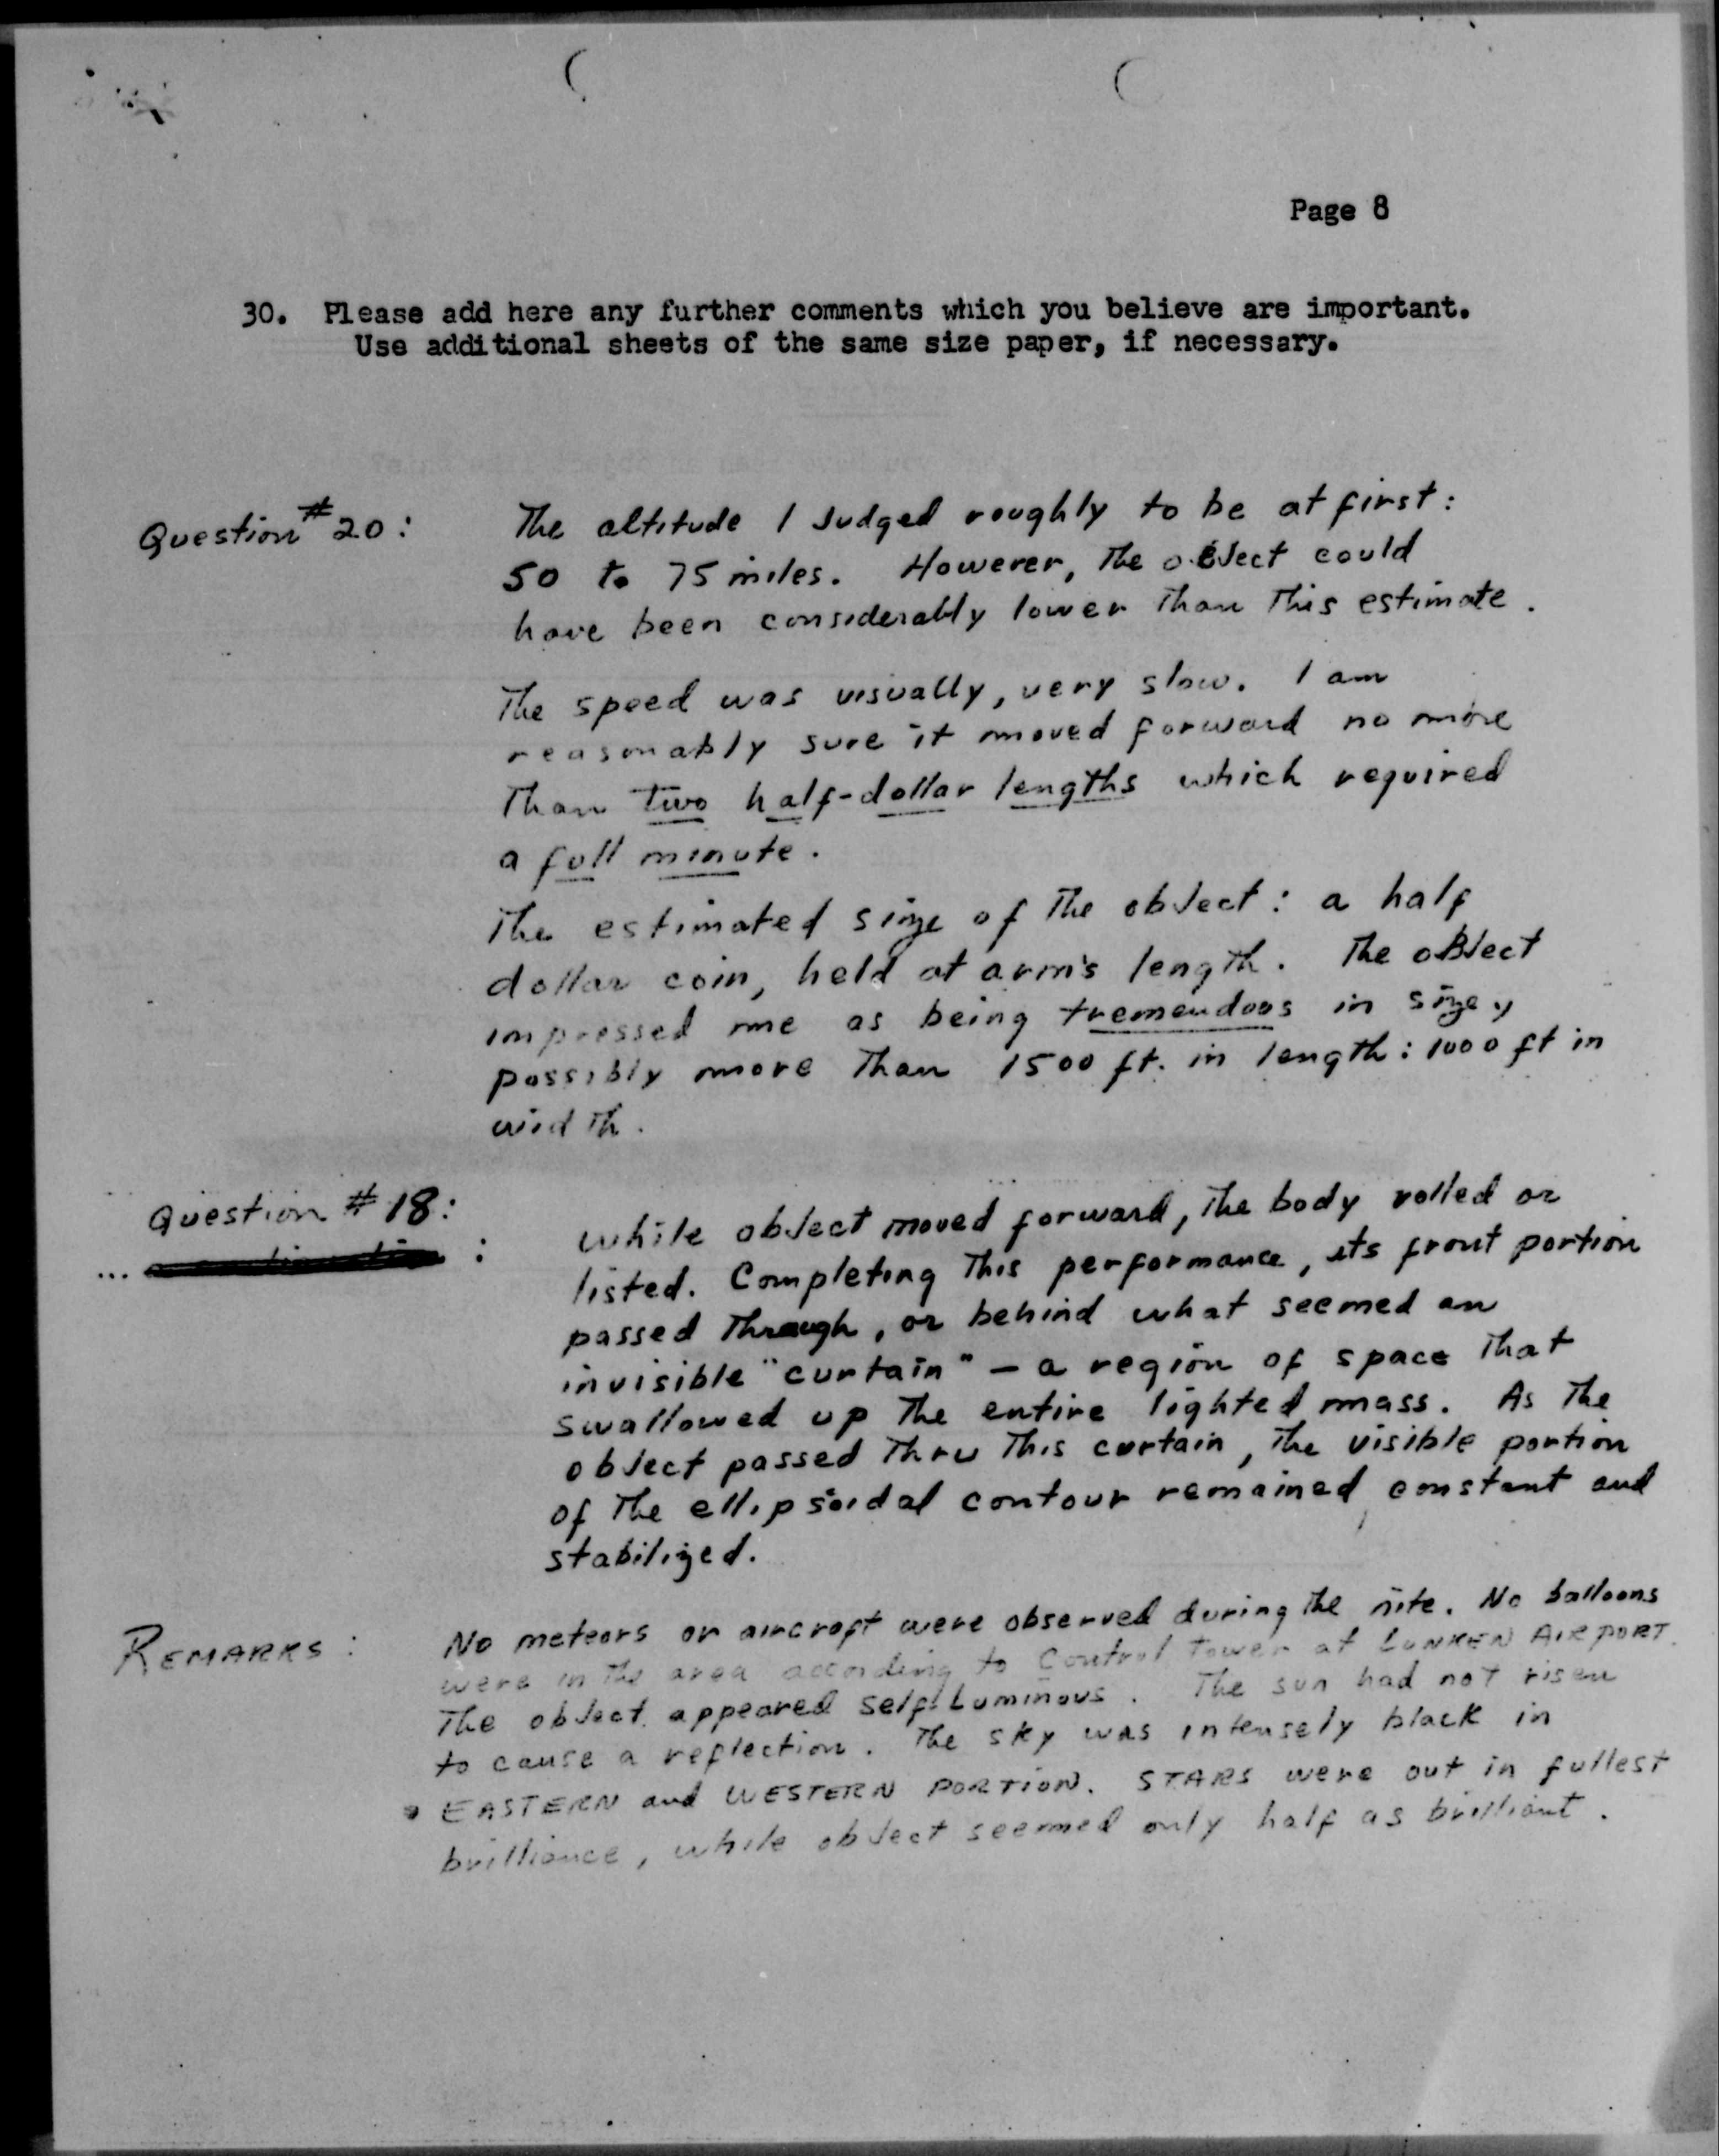 Page 8
30. Please add here any further comments which you believe are important.
Use additional sheets of the same size paper, if necessary.
Question #20: The altitude I Judged roughly to be at first:
50 to 75 miles. However, The obJect could
have been considerably lower Than This estimate.
The speed was visually, very slow. I am
reasonably sure it moved forward no more
Than two half-dollar lengths which required
a full minute.
The estimated size of The obJect: a half
dollar coin, held at arm's length. The obJect
impressed me as being tremendous in size,
possibly more Than 1500 ft. in length: 1000 ft in
width.
Question #18: While obJect moved forward, The body rolled or
listed. Completing This performance, its front portion
passed Through, or behind what seemed an
invisible "curtain" - a region of space That
swallowed up The entire lighted mass. As The
obJect passed Thru This curtain, The visible portion
of The ellipsoidal contour remained constant and
stabilized.
REMARKS: No meteors or aircraft were observed during The nite. No balloons
were in The area according to Control Tower at LUNKEN AIRPORT.
The obJect appeared self-Luminous. The sun had not risen
to cause a reflection. The sky was intensely black in
EASTERN and WESTERN PORTION. STARS were out in fullest
brilliance, while obJect seemed only half as brilliant.